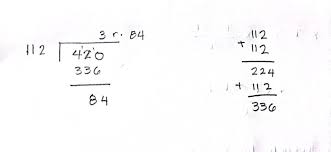 3 r. 84
112 420
336
84
112
+ 112
224
+ 112
336